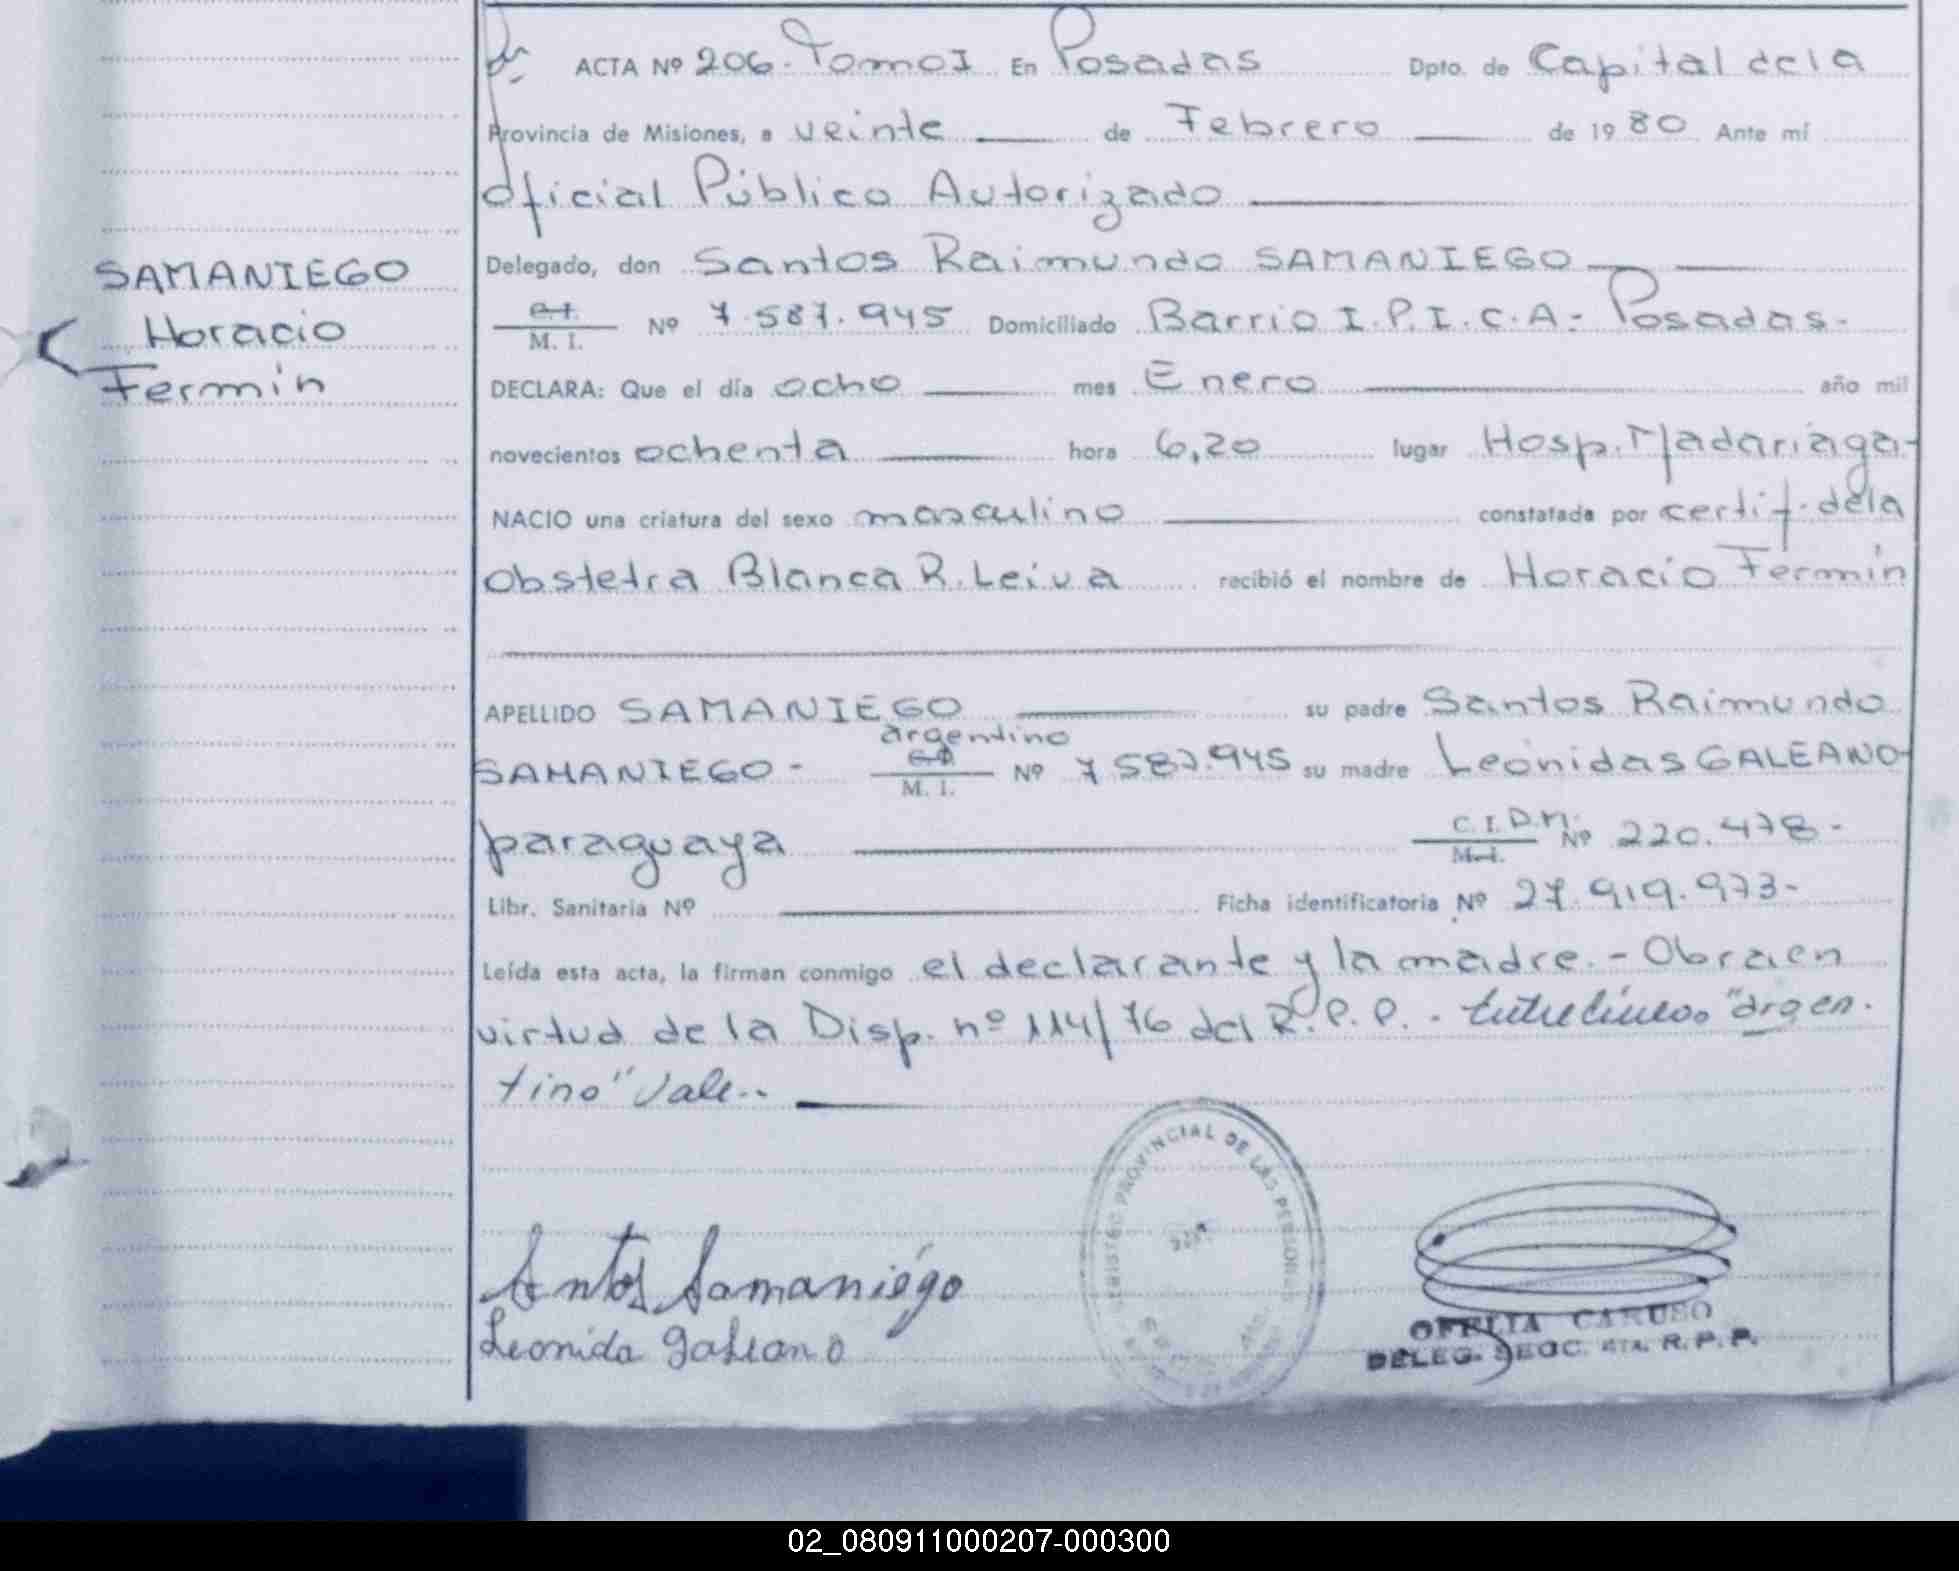 ACTA Nº 206. Tomo I En Posadas Dpto. de Capital de la
Provincia de Misiones, a veinte de Febrero de 1980 Ante mí
Oficial Público Autorizado
SAMANIEGO
Horacio
Fermín
Delegado, don Santos Raimundo SAMANIEGO
C.I.
M. I. Nº 7.587.945 Domiciliado Barrio I.P.I.C.A.- Posadas.-
DECLARA: Que el día ocho mes Enero año mil
novecientos ochenta hora 6,20 lugar Hosp. Madariaga-
NACIO una criatura del sexo masculino constatada por certif. de la
Obstetra Blanca R. Leiva recibió el nombre de Horacio Fermín
APELLIDO SAMANIEGO su padre Santos Raimundo
argentino
SAMANIEGO - M. I. Nº 7587.945 su madre Leonidas GALEANO-
paraguaya C.I.D.M. M.I. Nº 220.478-
Libr. Sanitaria Nº Ficha identificatoria Nº 27.919.973-
Leída esta acta, la firman conmigo el declarante y la madre.- Obra en
virtud de la Disp. nº 114/76 del R.P.P. - Entrelíneas "argen-
tino" Vale..
REGISTRO PROVINCIAL DE LAS PERSONAS
Santos Samaniégo
Leonida galeano
OFELIA CARUSO
DELEG. SECC. 4TA. R.P.P.
02_080911000207-000300